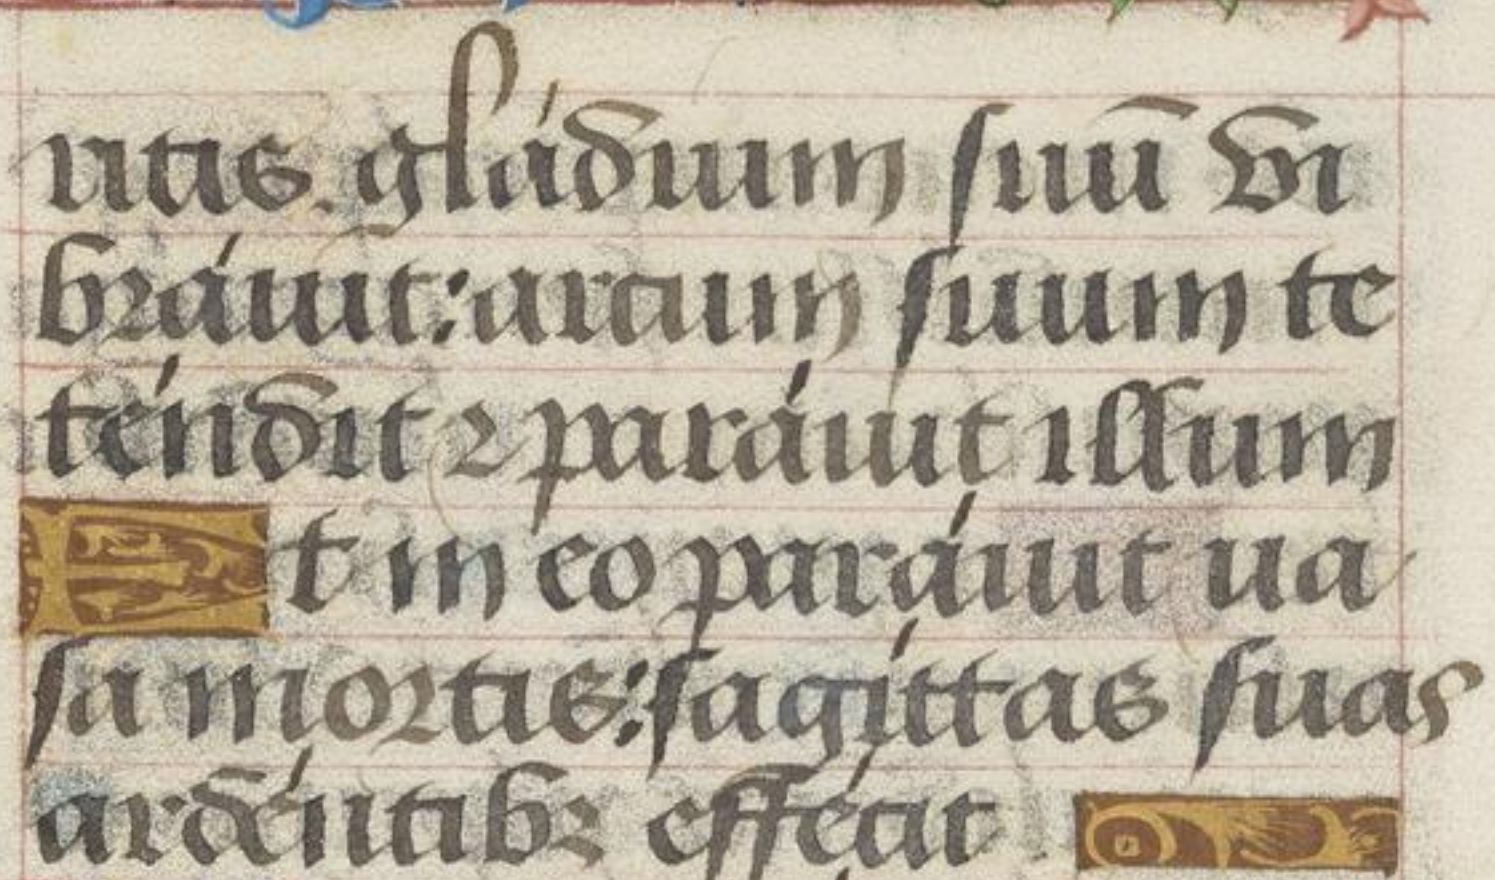 uitis gládium suū vi
bráuit: arcum suum te
téndit ⁊ paráuit illum
Et in eo paráuit ua
sa mortis: sagíttas suas
ardéntibꝰ effécit